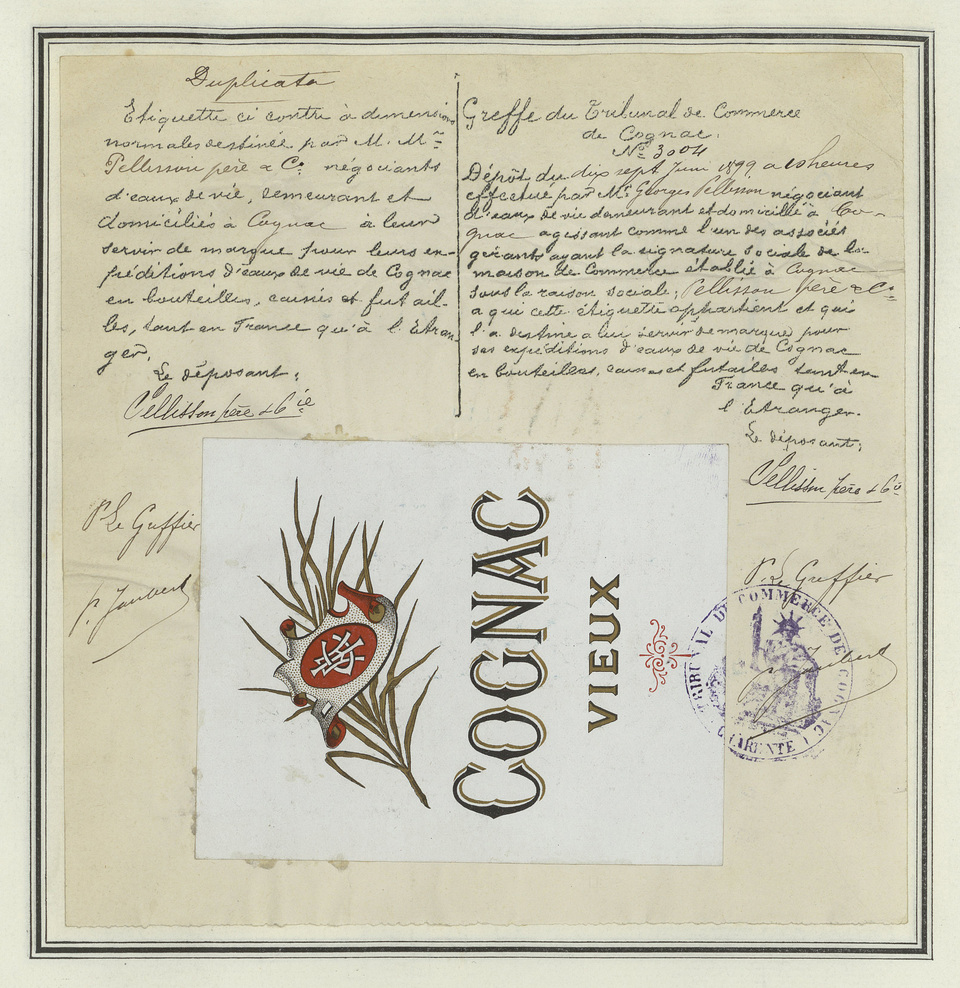 Duplicata
Etiquette ci contre à dimensions
normales destinée par M. Mrs
Pellisson père & Co. négociants
d'eaux de vie, demeurant et
domiciliés à Cognac à leur
servir de marque pour leurs ex-
péditions d'eaux de vie de Cognac
en bouteilles, caisses et futail-
les, tant en France qu'à l'Etran-
ger.
Le déposant:
Pellisson père & Cie
Greffe du Tribunal de Commerce
de Cognac.
No. 3004
Dépôt du dix sept Juin 1899, a 10 heures
effectué par Mr Georges Pellisson négociant
d'eaux de vie demeurant et domicilié à Co-
gnac agissant comme l'un des associés
gérants ayant la signature sociale de la
maison de Commerce établie à Cognac
sous la raison sociale; Pellisson père & Co.
a qui cette étiquette appartient et qui
l'a destine a lui servir de marque pour
ses expéditions d'eaux de vie de Cognac
en bouteilles, caisses et futailles tant en
France qu'à
l'Etranger.
Le déposant;
Pellisson père & Cie
P. Le Greffier
P. Le Greffier
COGNAC
VIEUX
TRIBUNAL DE COMMERCE DE COGNAC
CHARENTE